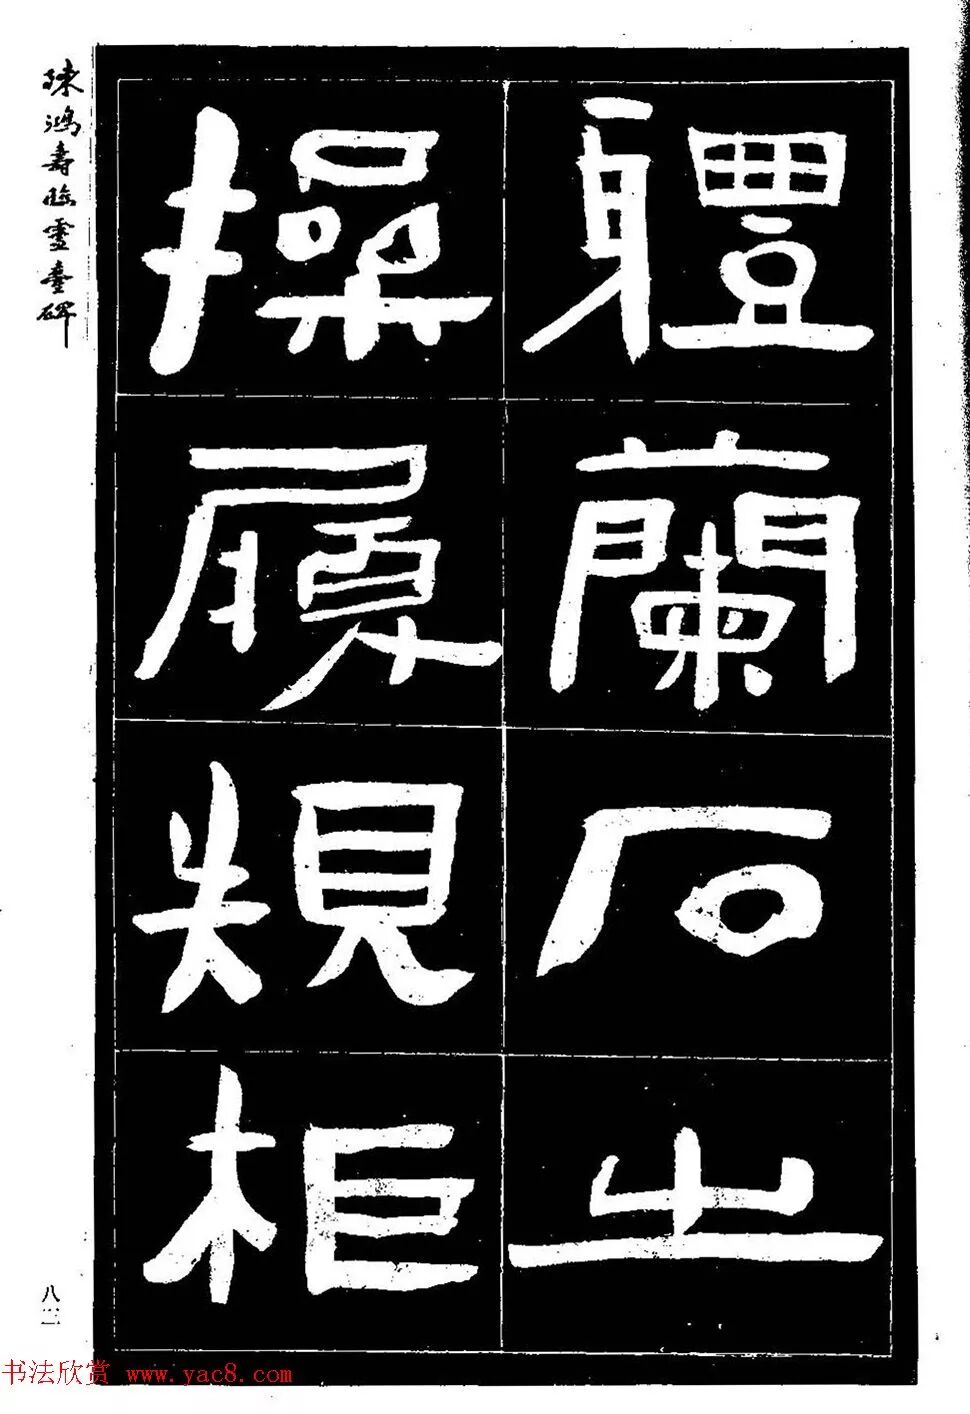 軆蘭石之
操履䂓柜
陳鴻壽臨靈臺碑
八三
书法欣赏 www.yac8.com